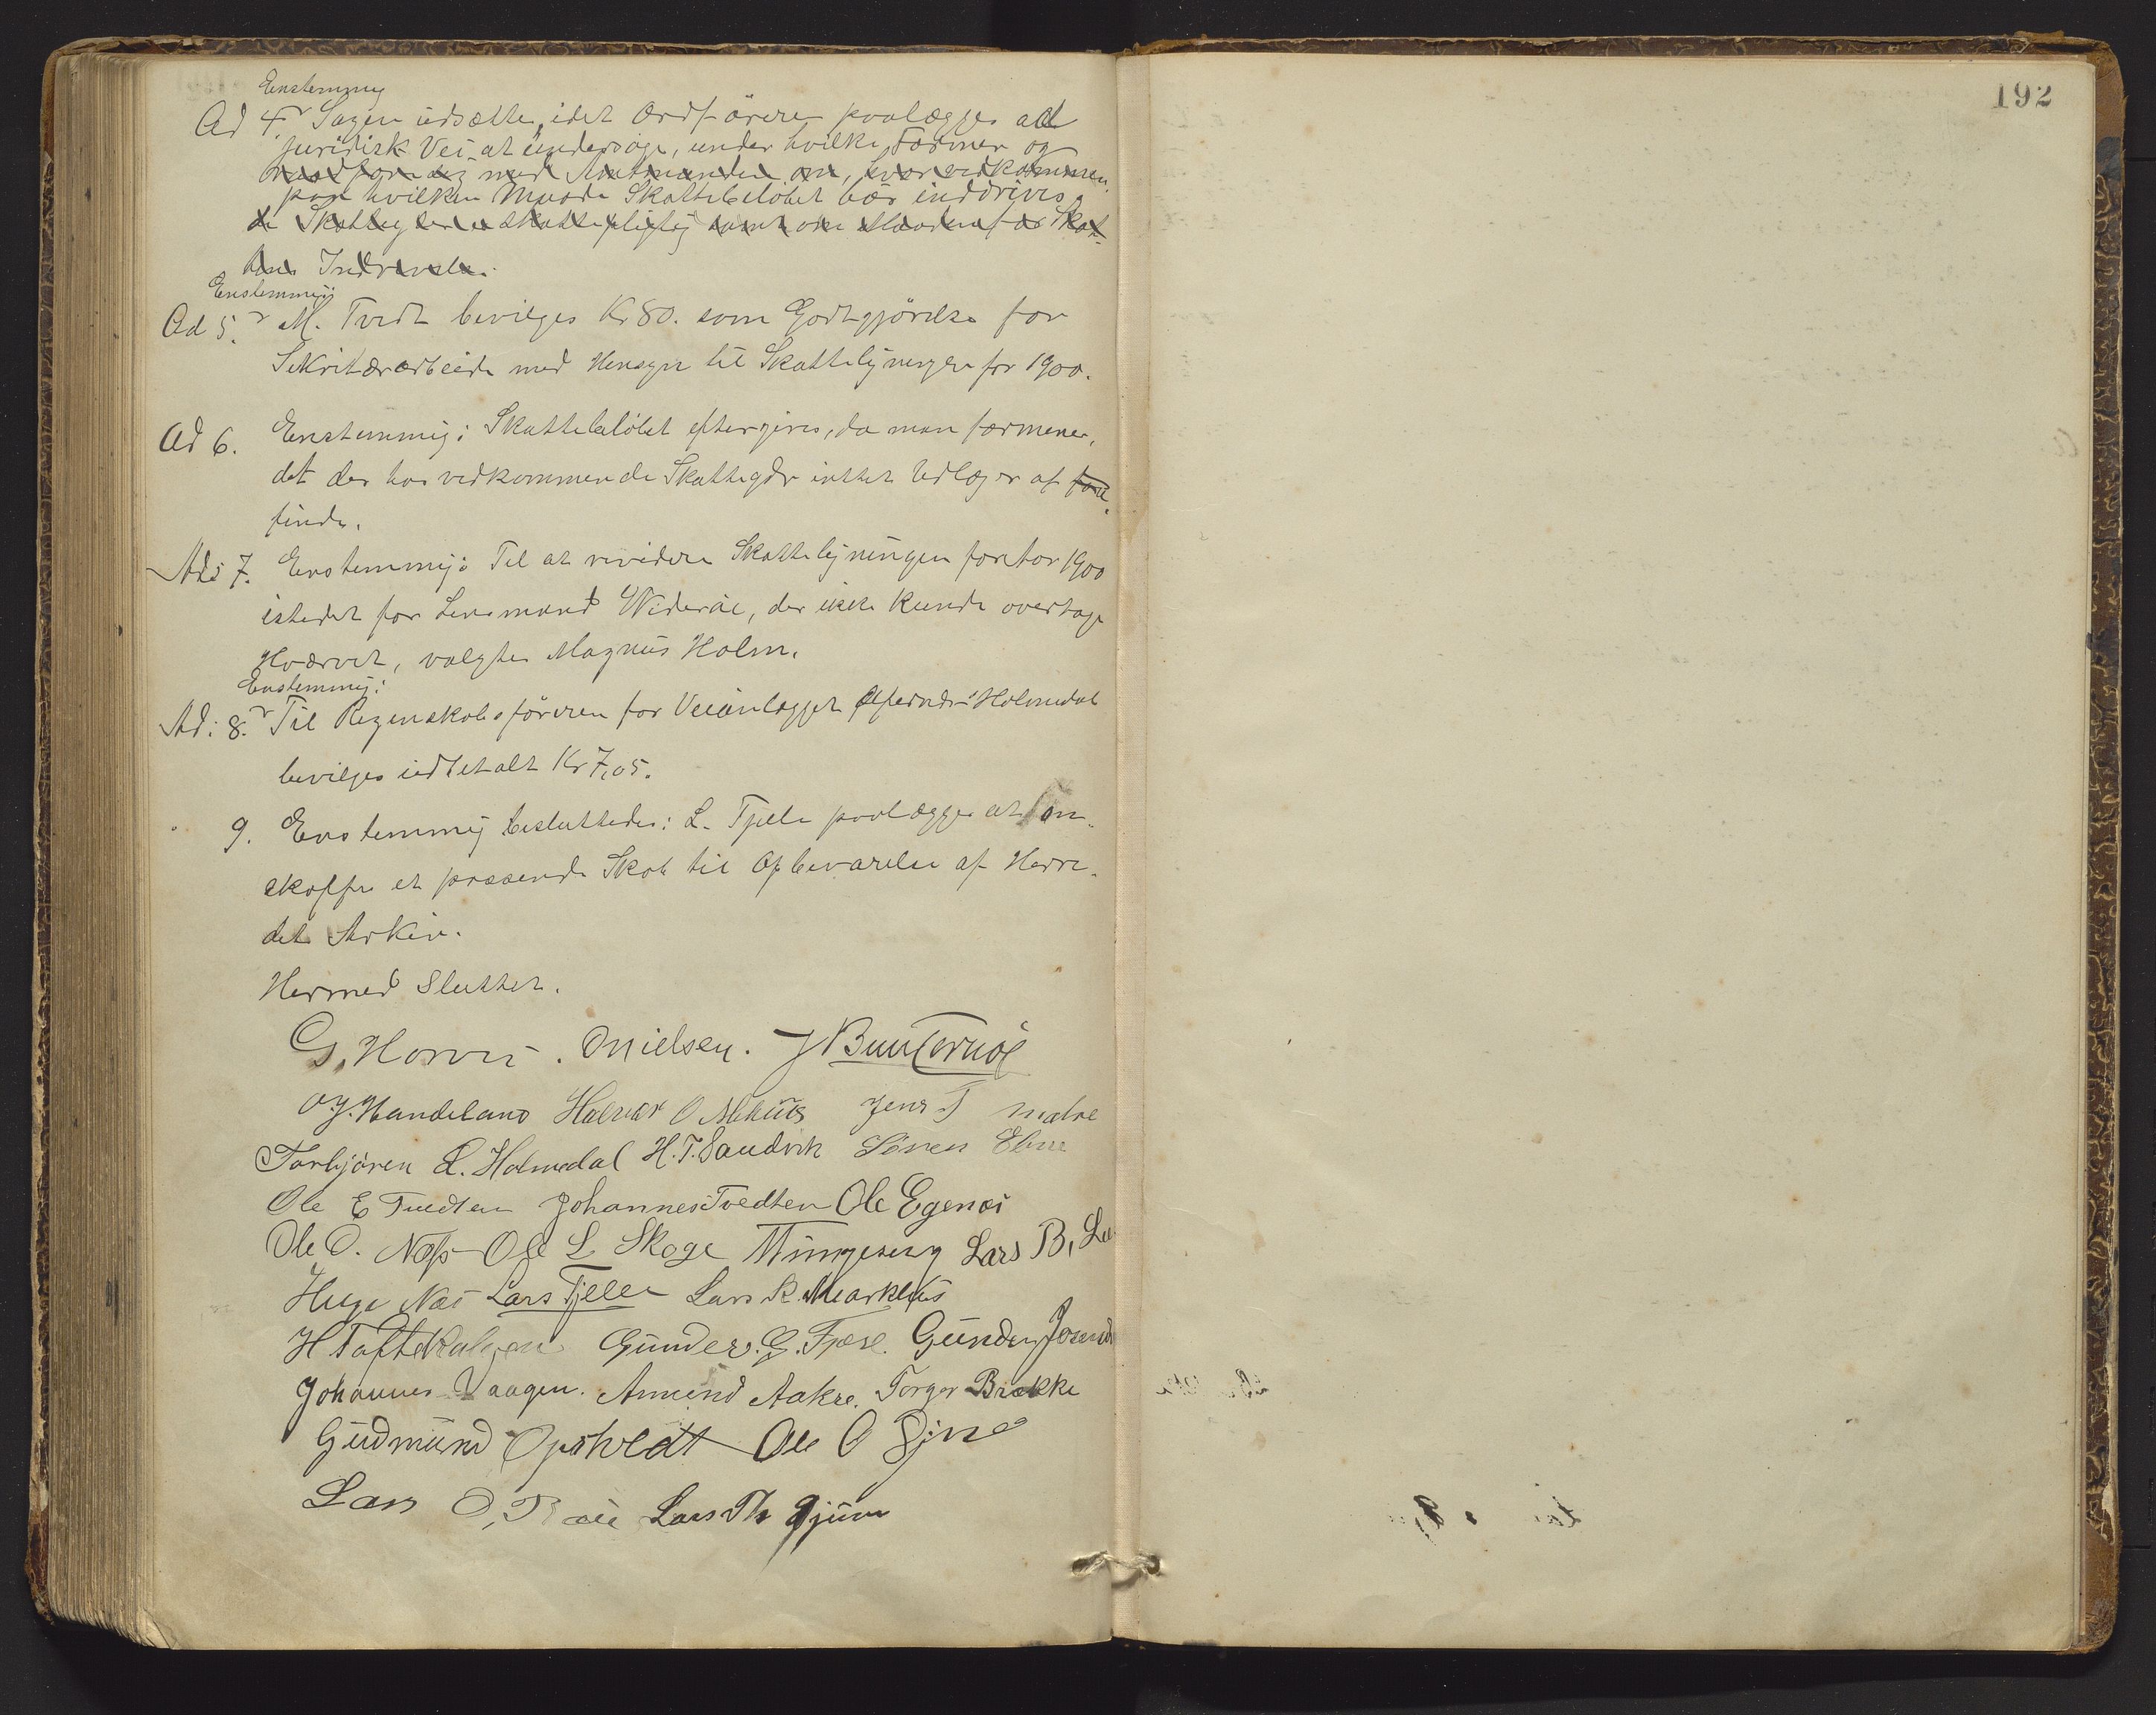 Enstemmig
Ad 4. Sagen udsættes, idet Ordföreren paalægges ad
juridisk Vei at undersöge, under hvilke Former og
med Amtmanden om, hvorvidt vedkommen-
paa hvilken Maade Skattebelöbet bör inddrives.
de Skatteyder er skattepligtig samt om Maaden for Skat-
tens Inddrivelse.
Enstemmig
Ad 5. M. Tvedt bevilges Kr 80. som Godtgjörelse for
Sekritærarbeide med Hensyn til Skatteligningen for 1900.
Ad 6. Enstemmig: Skattebelöbet eftergives, da man formener,
det der hos vedkommende Skatteyder intet Udlæg er at
finde.
Ad: 7. Enstemmig: Til at revidere Skatteligningen for 1900
istedet for Lensmand Wideröe, der ikke kunde overtage
Hvervet, valgtes Magnus Holm.
Enstemmig:
Ad: 8. Til Regnskabsföreren for Veianlægget Ölfernes-Holmedal
bevilges udbetalt Kr 7,05.
9. Enstemmig besluttedes: L. Tjelle paalægges at an-
skaffe et passende Skab til Opbevarelse af Herre-
dets Arkiv.
Hermed Sluttet.
G. Horvei. O Nielsen. J
O J. Handeland Halvor O Mehus Jens T Matre
Torbjören L. Holmedal H. T. Sandvik Sören Ebne
Ole E Tvedten Johannes Tvedten Ole Egenæs
Ole O. Næss Ole L Skoge Lars B.
Næs Lars Tjelle Lars R. Markhus
H Toftekalven Gunder. G. Fjære. Gunder
Johannes Vaagen. Amund Aakre. Torger Brække
Gudmund Opstvedt Ole O
Lars O, Lars Th Gjuve
192